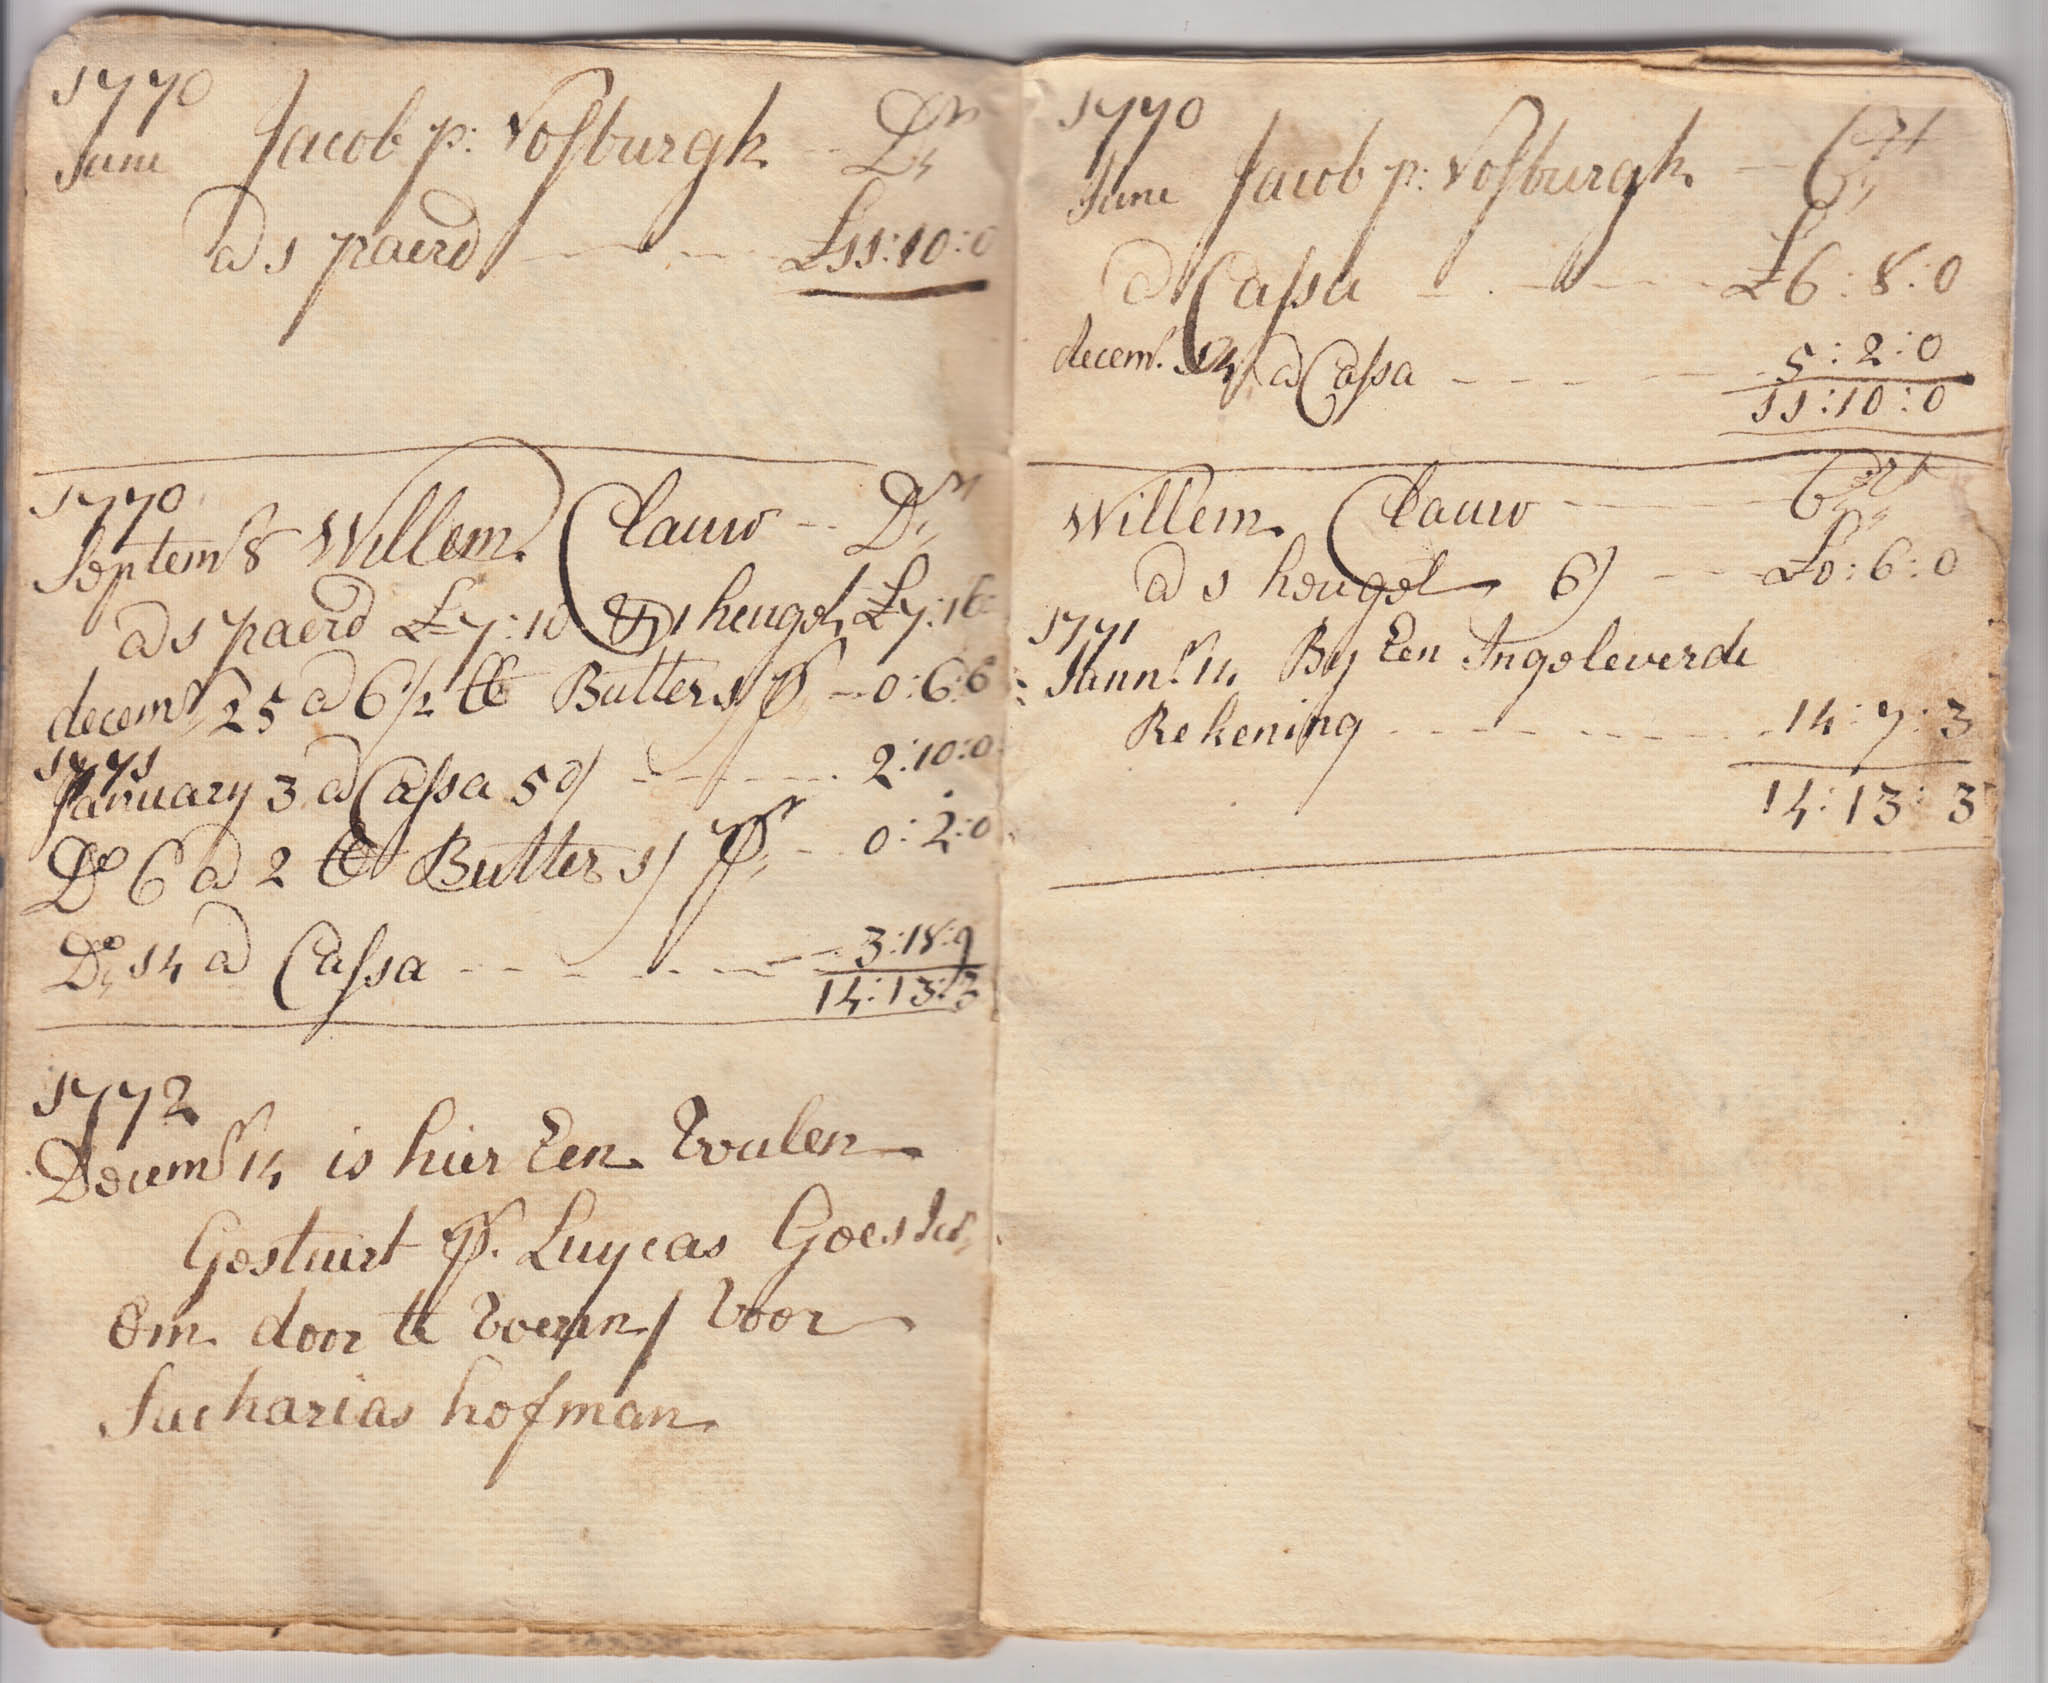 1770
June Jacob p: Vosburgh -- Dr
@ 1 paerd - - - - £11:10:0
1770
Septemr 8 Willem Clauw -- Dr
@ 1 paerd £7:10 @ 1 heugel £7:16
decemr 25 @ 6½ lb Butter 1/ pr - 0:6:6
1771
January 3 @ Cassa 50/ - - - - 2:10:0
Do 6 @ 2 lb Butter 1/ pr - - 0:2:0
Do 14 @ Cassa - - - - - - 3:18:9
14:13:3
1772
Decemr 14 is hier Een Voulen
Gestuirt pr. Luycas Goes
Om door te Voeren / Voor
Sacharias hofman
1770
June Jacob p: Vosburgh - Cr
@ Cassa - - - - - £6:8:0
decemr. 14 @ Cassa - - - - - 5:2:0
11:10:0
Willem Clauw - - - - Cr
@ 1 heugel 6/ - - - £0:6:0
1771
Jannr 14 By Een Ingeleverde
Rekening - - - - - - - 14:7:3
14:13:3